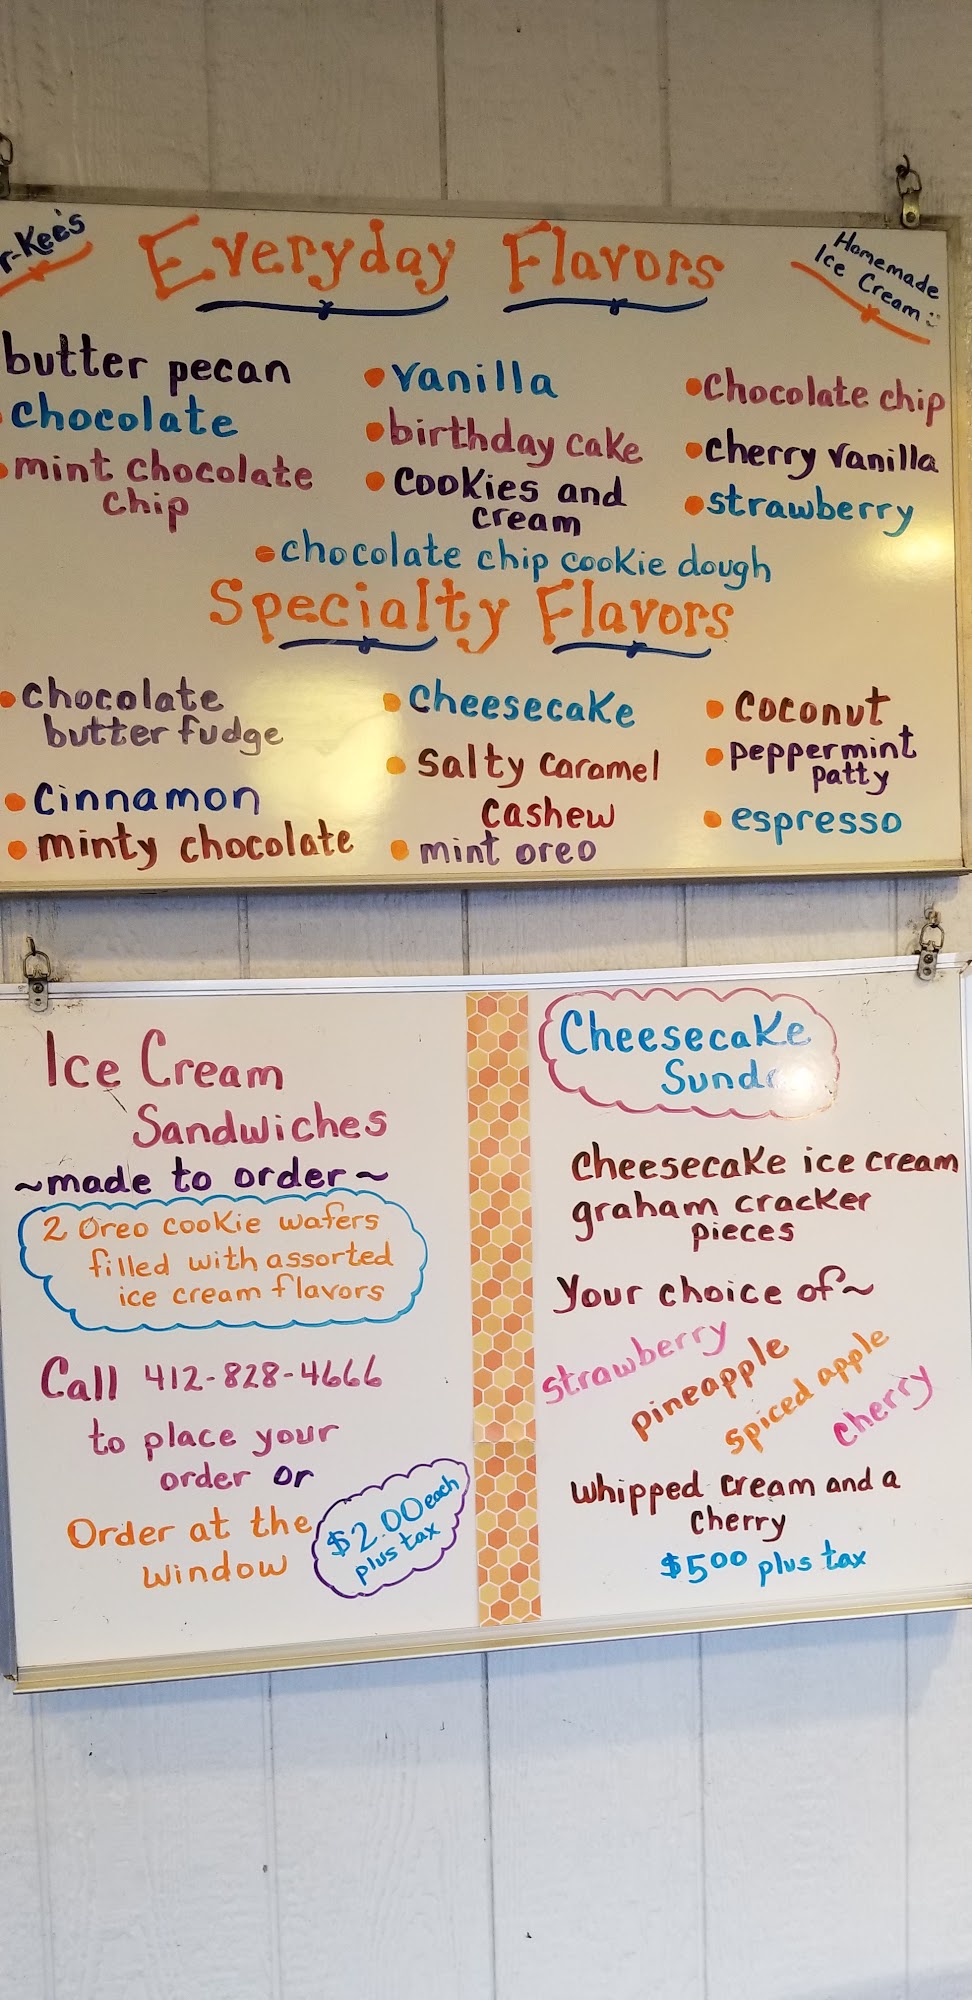 r-Kee's
Everyday Flavors
Homemade
Ice Cream
butter pecan
chocolate
mint chocolate
chip
vanilla
birthday cake
cookies and
cream
chocolate chip
cherry vanilla
strawberry
chocolate chip cookie dough
Specialty Flavors
chocolate
butter fudge
cinnamon
minty chocolate
cheesecake
salty caramel
cashew
mint oreo
coconut
peppermint
patty
espresso
Ice Cream
Sandwiches
~made to order~
2 Oreo cookie wafers
filled with assorted
ice cream flavors
Call 412-828-4666
to place your
order or
Order at the
window
$2.00 each
plus tax
Cheesecake
Sund
cheesecake ice cream
graham cracker
pieces
Your choice of~
strawberry
pineapple
spiced apple
cherry
whipped cream and a
cherry
$5.00 plus tax